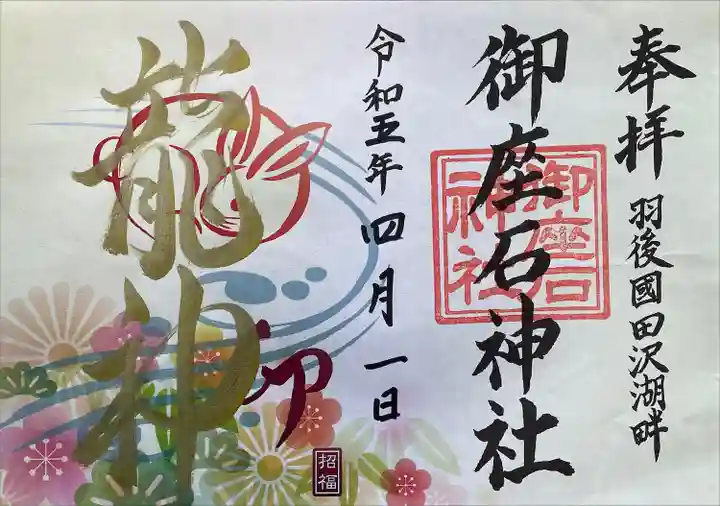 奉拝 羽後國田沢湖畔
御座石神社
御座石
神社
令和五年四月一日
龍神
卯
招福